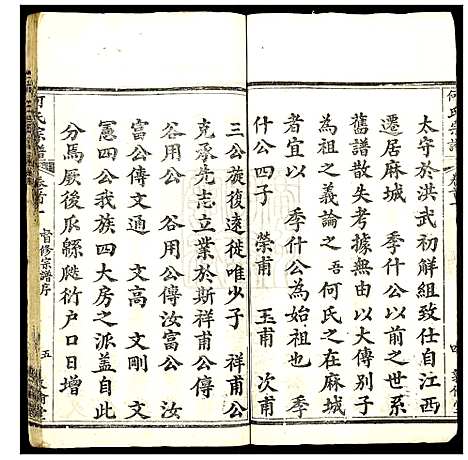 何氏宗譜
太守於洪武初解組致仕自江西
遷居麻城　季什公以前之世系
舊譜散失考據無由以大傳別子
為祖之義論之　吾何氏之在麻城
者宜以　季什公為始祖也　季
什公四子　榮甫　玉甫　次甫
三公旋後遠徙唯少子　祥甫公
克承先志立業於斯祥甫公傳
谷用公　谷用公傳汝富公　汝
富公傳文通　文高　文剛　文
憲四公我族四大房之派蓋自此
分焉厥後瓜緜瓞衍户口日增
何氏宗譜
卷首一
督修宗譜序
五